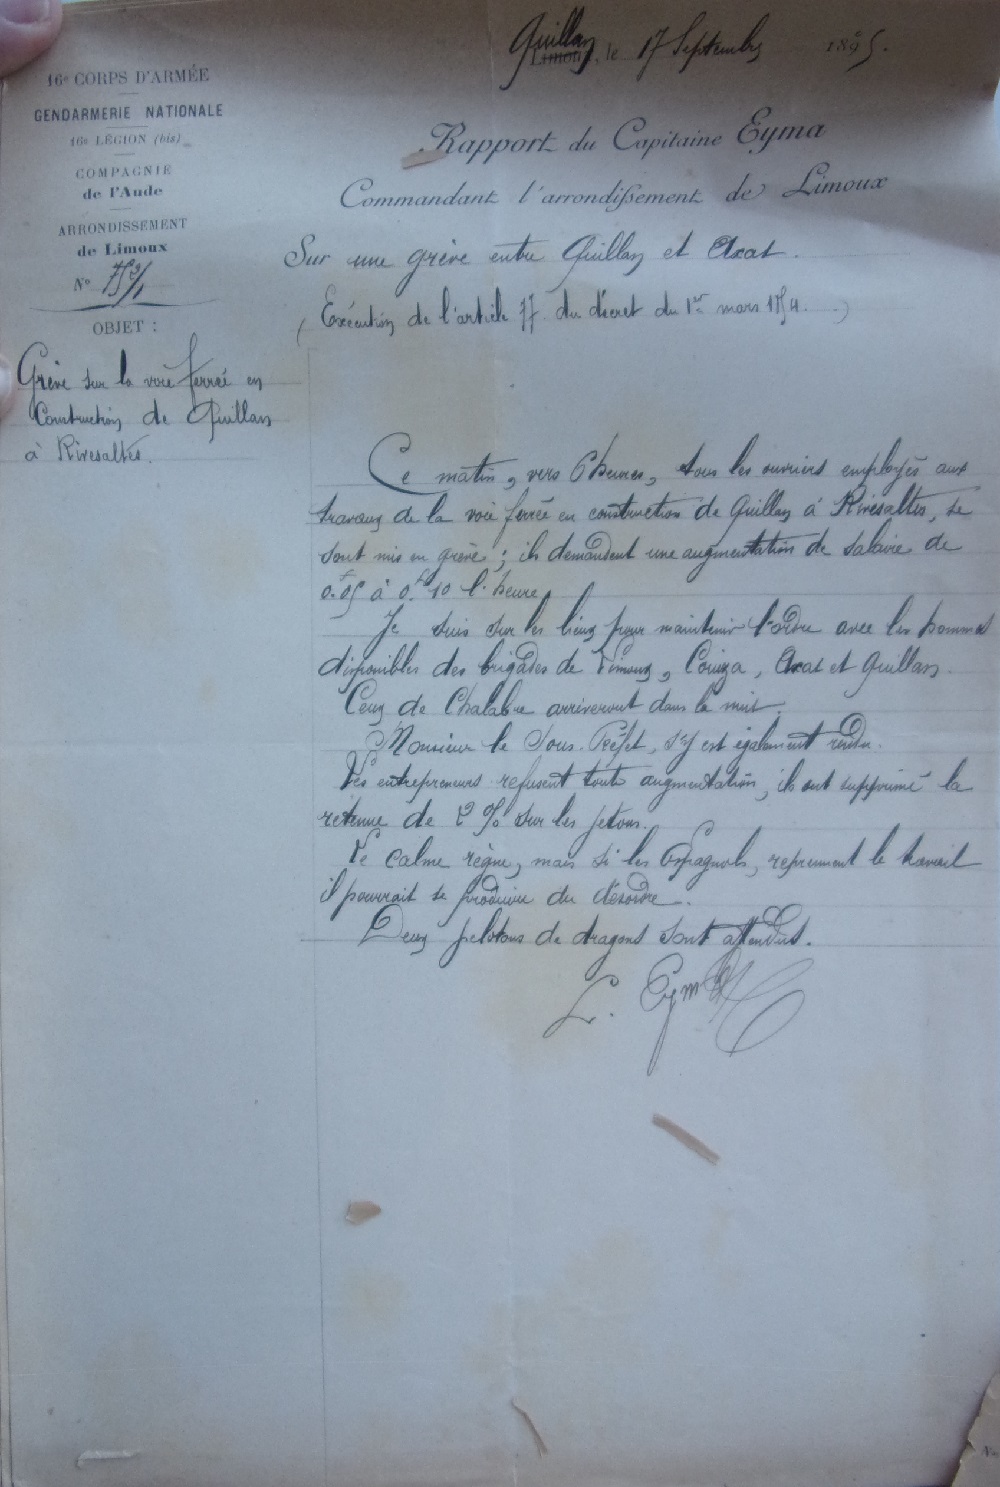 Quillan, le 17 Septembre 1895.
16e CORPS D'ARMÉE
GENDARMERIE NATIONALE
16e LÉGION (bis)
COMPAGNIE
de l'Aude
ARRONDISSEMENT
de Limoux
N°
OBJET :
Grève sur la voie ferrée en
Construction de Quillan
à Rivesaltes.
Rapport du Capitaine Eyma
Commandant l'arrondissement de Limoux
Sur une grève entre Quillan et Axat.
(Exécution de l'article 77 du décret du 1er mars 1854.)
Ce matin, vers 6 heures, tous les ouvriers employés aux
travaux de la voie ferrée en construction de Quillan à Rivesaltes, se
sont mis en grève ; ils demandent une augmentation de salaire de
0f.05 à 0f.10 l'heure.
Je suis sur les lieux pour maintenir l'ordre avec les hommes
disponibles des brigades de Limoux, Couiza, Axat et Quillan.
Ceux de Chalabre arriveront dans la nuit.
Monsieur le Sous-Préfet, s'y est également rendu.
Les entrepreneurs refusent toute augmentation, ils ont supprimé la
retenue de 2 % sur les jetons.
Le calme règne, mais si les Espagnols, reprennent le travail
il pourrait se produire du désordre.
Deux pelotons de dragons sont attendus.
L. Eyma